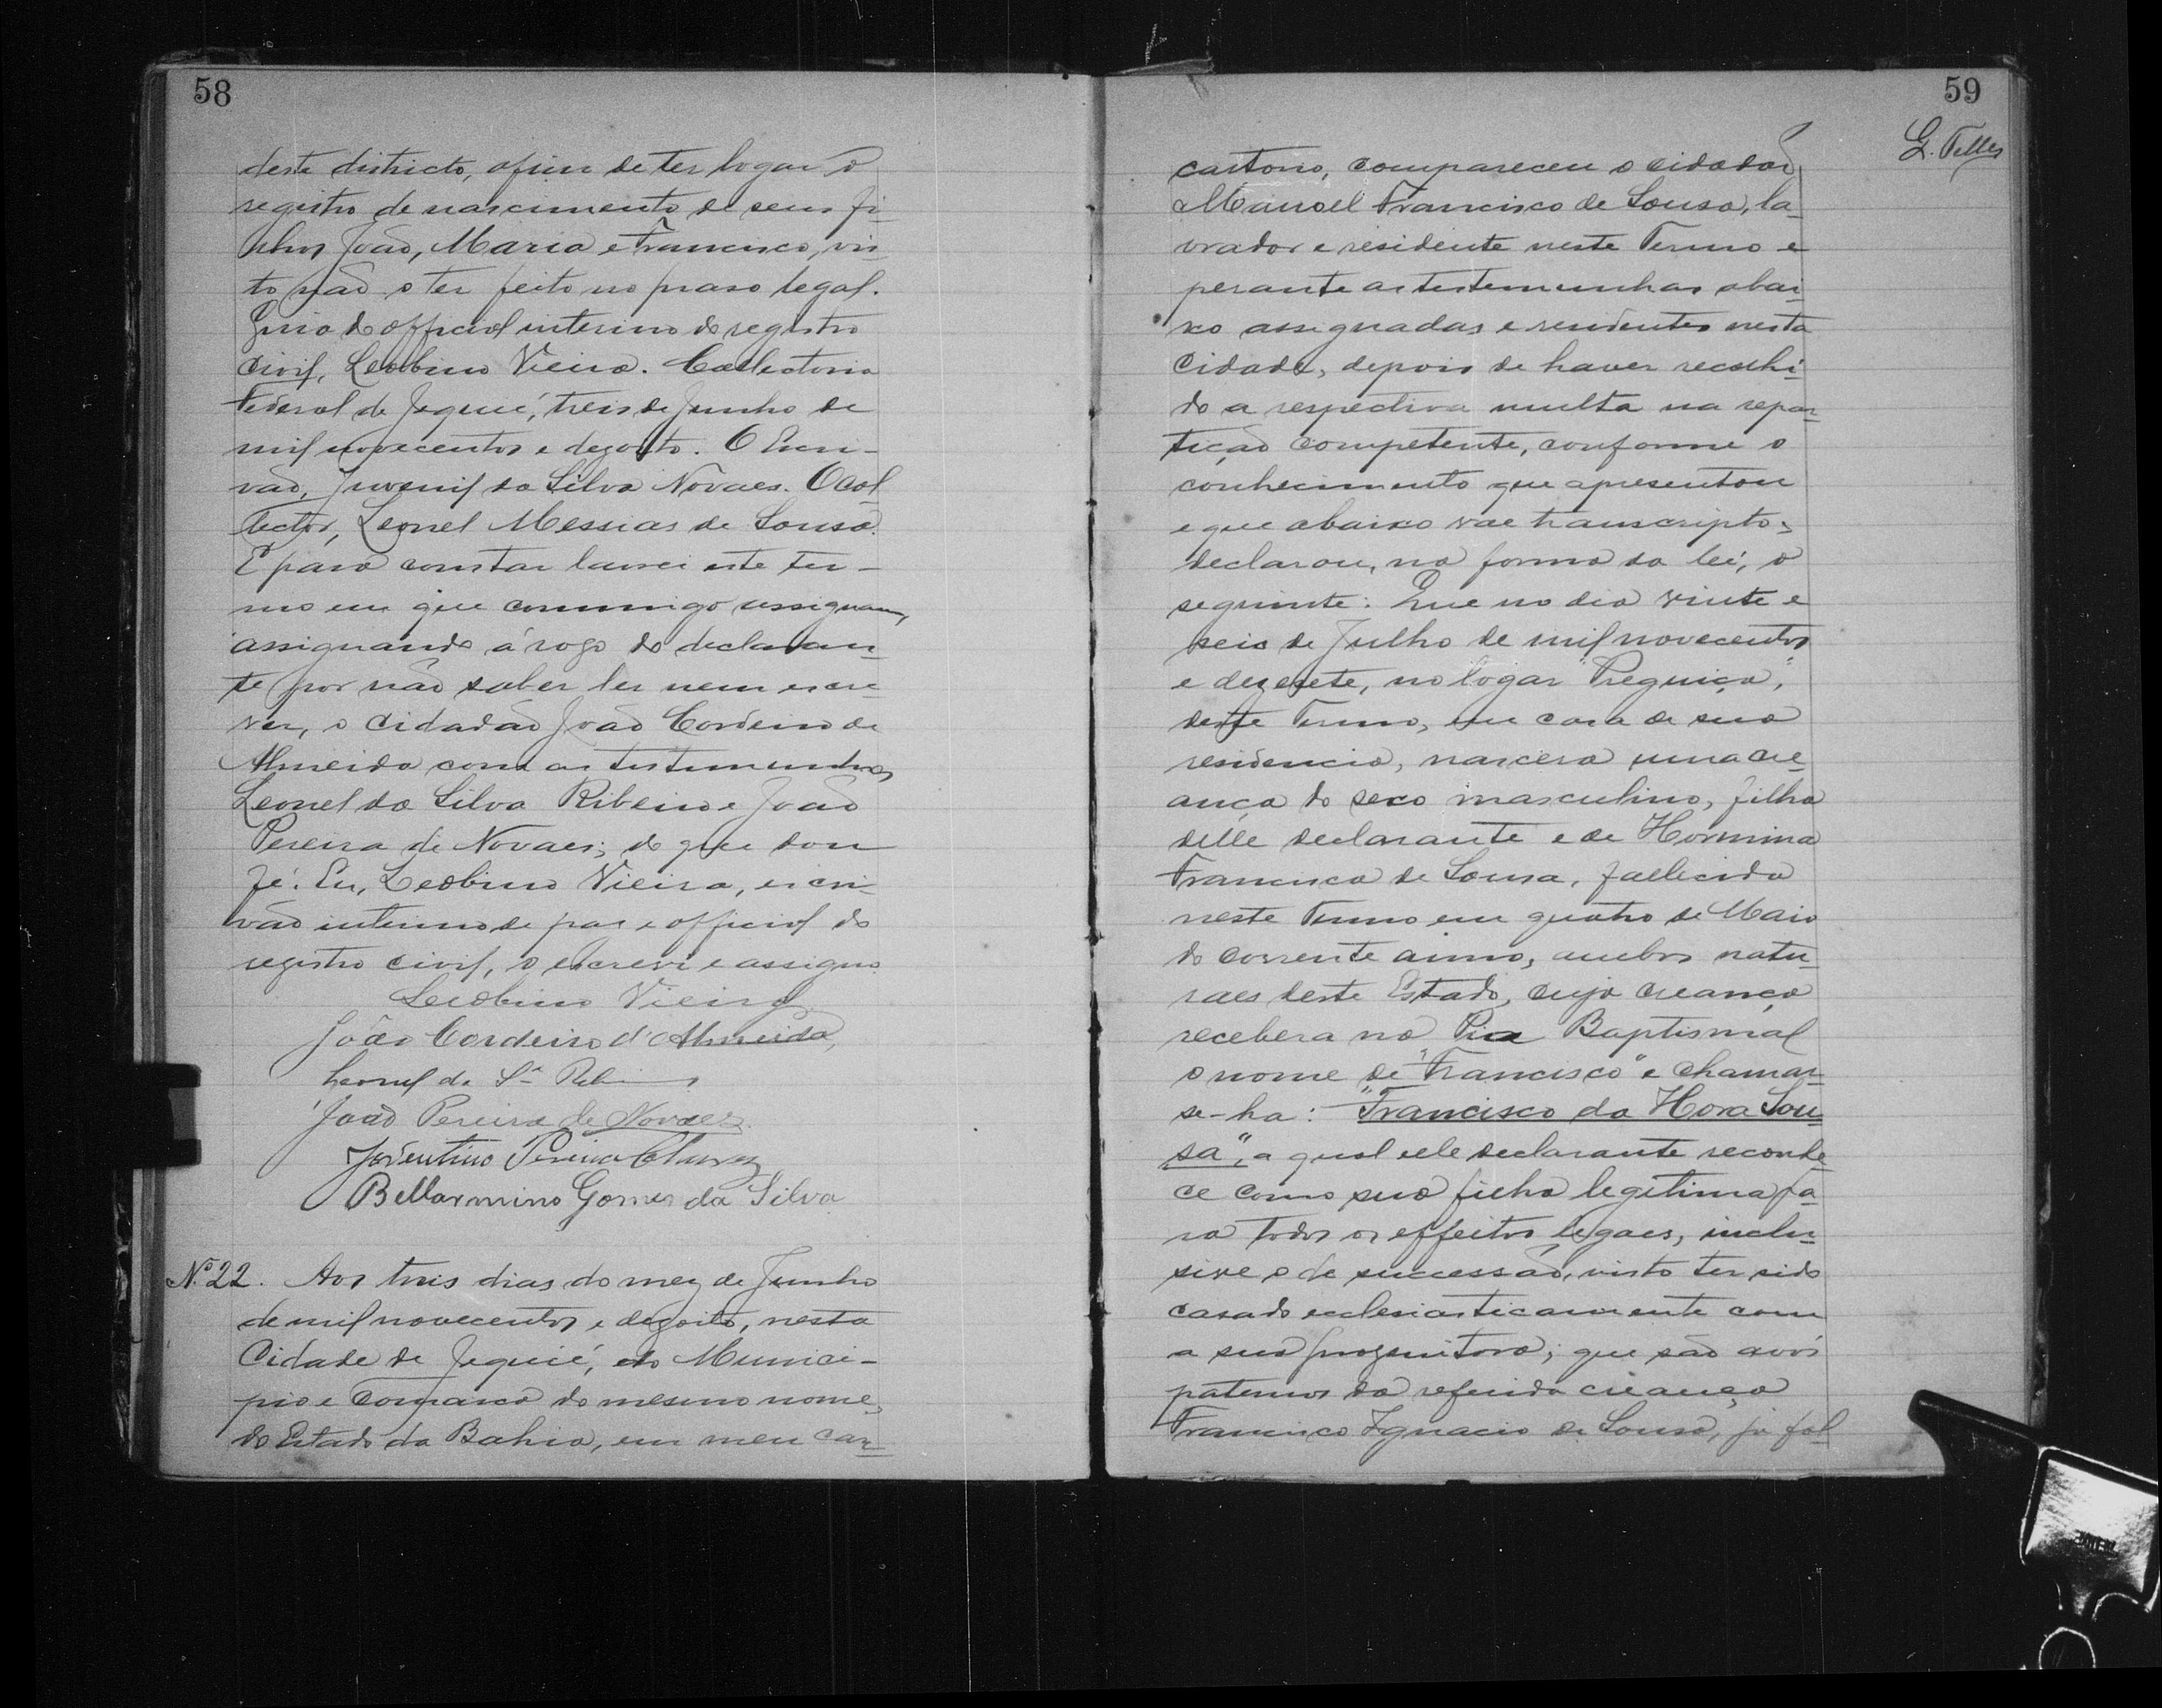 58
deste districto, afim de ter logar o
registro de nascimento de seus fi-
lhos João, Maria e Francisco, vis-
to não o ter feito no praso legal.
Guia do official interino do registro
Civil, Leobino Vieira. Collectoria
Federal de Jequié, treis de Junho de
mil novecentos e dezoito. O Escri-
vão, Juvenil da Silva Novaes. O Col
lector, Leonel Messias de Sousa.
E para constar lavrei este ter-
mo em que commigo assignam,
assignando á rogo do declaran-
te por não saber ler nem escre-
ver, o cidadão João Cordeiro de
Almeida com as testemunhas
Leonel da Silva Ribeiro e João
Pereira de Novaes; do que dou
fé. Eu, Leobino Vieira, escri-
vão interino de paz e official do
registro civil, o escrevi e assigno
Leobino Vieira
João Cordeiro d'Almeida,
Leonel da Sª Ribeiro
João Pereira de Novaes.
Joventino Pereira
Bellarmino Gomes da Silva
Nº 22. Aos treis dias do mez de Junho
de mil novecentos e dezoito, nesta
Cidade de Jequié, do Munici-
pio e Comarca do mesmo nome,
do Estado da Bahia, em meu car-
59
G. Telles
cartorio, compareceu o cidadão
Manoel Francisco de Sousa, la-
vrador e residente neste Termo e
perante as testemunhas abai-
xo assignadas e residentes nesta
Cidade, depois de haver recolhi-
do a respectiva multa na repar-
tição competente, conforme o
conhecimento que apresentou
e que abaixo vae transcripto,
declarou, na forma da lei, o
seguinte: Que no dia vinte e
seis de Julho de mil novecentos
e dezesete, no logar "Preguiça",
deste Termo, em casa de sua
residencia, nascera uma cre-
ança do sexo masculino, filha
delle declarante e de Hormina
Francisca de Sousa, fallecida
neste Termo em quatro de Maio
do corrente anno, ambos natu-
raes deste Estado, cuja creança
recebera na Pia Baptismal
o nome de "Francisco" e chamar-
se-ha: "Francisco da Hora Sou-
sa", a qual elle declarante reconhe-
ce como sua filha legitima pa-
ra todos os effeitos legaes, inclu-
sive o de successão, visto ter sido
casado ecclesiasticamente com
a sua progenitora; que são avós
paternos da referida creança
Francisco Ignacio de Sousa, já fal-